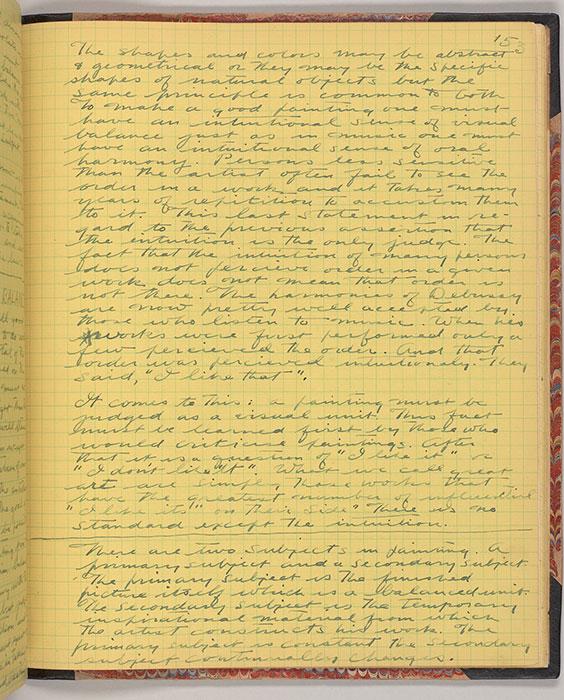 15
The shapes and colors may be abstract
& geometrical or they may be the specific
shapes of natural objects but the
same principle is common to both
To make a good painting one must
have an intuitional sense of visual
balance just as in music one must
have an intuitional sense of oral
harmony. Persons less sensitive
than the artist often fail to see the
order in a work and it takes many
years of repitition to accustom them
to it. This last statement in re-
gard to the previous assertion that
the intuition is the only judge. The
fact that the intuition of many persons
does not percieve order in a given
work does not mean that order is
not there. The harmonies of Debussy
are now pretty well accepted by
those who listen to music. When his
works were first performed only a
few percieved the order. And that
order was percieved intuitionaly. They
said, "I like that".
It comes to this: a painting must be
judged as a visual unit. This fact
must be learned first by those who
would criticise paintings. After
that it is a question of "I like it" or
"I don't like it". What we call great
art are simply those works that
have the greatest number of influential
"I like its" on their side" There is no
standard except the intuition.
There are two subjects in painting. A
primary subject and a secondary subject.
The primary subject is the finished
picture itself which is a balanced unit.
The secondary subject is the temporary
inspirational material from which
the artist constructs his work. The
primary subject is constant the secondary
subject continually changes.